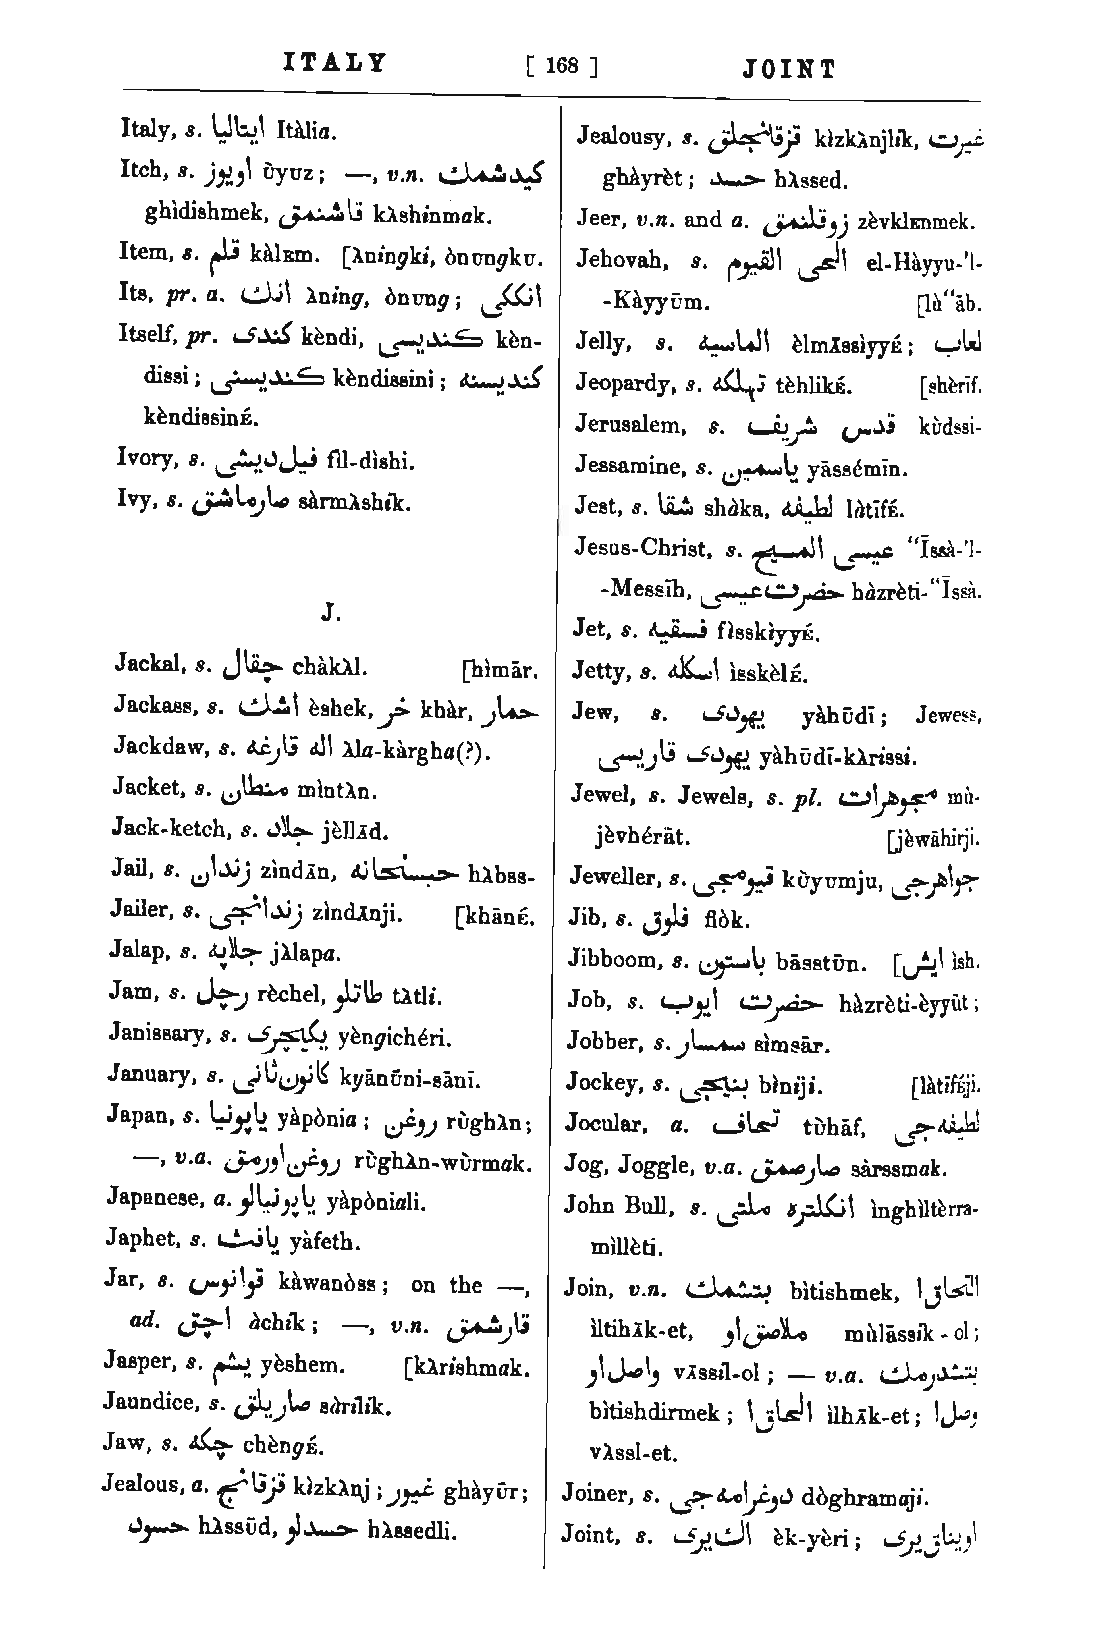 ITALY [ 168 ] JOINT
Italy, s. ايتاليا Itàlia.
Itch, s. اويوز ùyuz; —, v.n. كيديشمك
ghìdishmek, قاشنمق kλshinmak.
Item, s. قلم kàlᴇm. [λningki, ònungku.
Its, pr. a. انك λning, ònung; انككى
Itself, pr. كندى kèndi, كنديسى kèn-
dissi; كنديسنى kèndissini; كنديسنه
kèndissinÉ.
Ivory, s. فيل ديشى fīl-dìshi.
Ivy, s. صارماشق sàrmλshik.
J.
Jackal, s. چقال chàkλl. [hìmār.
Jackass, s. اشك èshek, خر khàr, حمار
Jackdaw, s. اله قارغه λla-kàrgha(?).
Jacket, s. منطان mìntλn.
Jack-ketch, s. جلاد jèllĀd.
Jail, s. زندان zìndĀn, حبسخانه hλbss-
Jailer, s. زندانجى zìndĀnji. [khānÉ.
Jalap, s. جلاپه jλlapa.
Jam, s. رچل rèchel, طاتلو tλtli.
Janissary, s. يكيچرى yèngichéri.
January, s. كانون ثانى kyānūni-sānī.
Japan, s. ياپونيا yàpònia; روغن rùghλn;
—, v.a. روغن اورمق rùghλn-wùrmak.
Japanese, a. ياپونيالو yàpòniali.
Japhet, s. يافث yàfeth.
Jar, s. قوانوس kàwanòss; on the —,
ad. اچق àchik; —, v.n. قارشمق
Jasper, s. يشم yèshem. [kλrishmak.
Jaundice, s. صاريلق sàrīlik.
Jaw, s. چكه chèngÉ.
Jealous, a. قزقانج kìzkλnj; غيور ghàyūr;
حسود hλssūd, حسدلو hλssedli.
Jealousy, s. قزقانجلق kìzkλnjlik, غيرت
ghàyrèt; حسد hλssed.
Jeer, v.n. and a. زوقلنمق zèvklᴇnmek.
Jehovah, s. الحى القيوم el-Hàyyu-'l-
-Kàyyūm. [là“āb.
Jelly, s. الماسيه èlmĀssìyyÉ; لعاب
Jeopardy, s. تهلكه tèhlikÉ. [shèrīf.
Jerusalem, s. قدس شريف kùdssi-
Jessamine, s. ياسمين yāssémīn.
Jest, s. شقا shàka, لطيفه làtīfÉ.
Jesus-Christ, s. عيسى المسيح “Īssà-'l-
-Messīh, حضرت عيسى hàzrèti-“Īssà.
Jet, s. فسقيه fìsskìyyÉ.
Jetty, s. اسكله ìsskèlÉ.
Jew, s. يهودى yàhūdī; Jewess,
يهودى قاريسى yàhūdī-kλrissi.
Jewel, s. Jewels, s. pl. مجوهرات mù-
jèvhérāt. [jèwāhirji.
Jeweller, s. قيومجى kùyumju, جواهرجى
Jib, s. فلوق flòk.
Jibboom, s. باستون bāsstūn. [ايش ìsh.
Job, s. حضرت ايوب hàzrèti-èyyūt;
Jobber, s. سمسار sìmsār.
Jockey, s. بنيجى bìniji. [làtīfÉji.
Jocular, a. تحاف tùhāf, لطيفه جى
Jog, Joggle, v.a. صارصمق sàrssmak.
John Bull, s. انكلتره ملتى ìnghìltèrra-
mìllèti.
Join, v.n. بتشمك bìtishmek, التحاق ا
ìltihĀk-et, ملاصق او mùlāssik-ol;
واصل او vĀssil-ol; — v.a. بتشدرمك
bìtishdirmek; الحاق ا ìlhĀk-et; وصل ا
vλssl-et.
Joiner, s. دوغرامه جى dòghramaji.
Joint, s. اك يرى èk-yèri; اويناق يرى